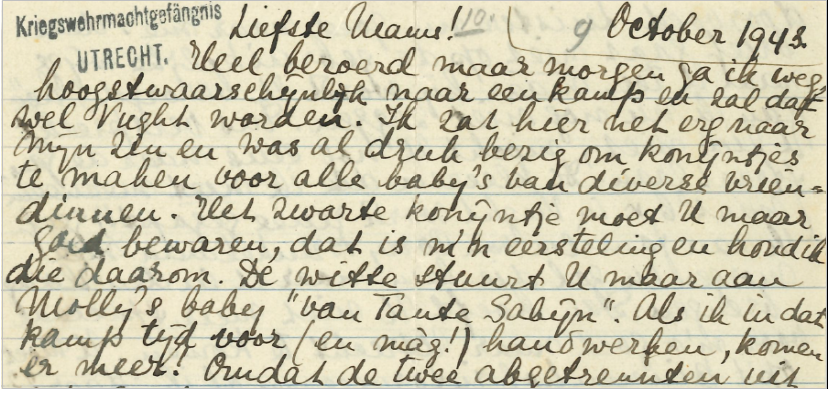 Kriegswehrmachtgefängnis
UTRECHT.
Liefste Mams! 10. 9 October 1943.
Heel beroerd maar morgen ga ik weg,
hoogstwaarschijnlijk naar een kamp en zal dat
wel Vught worden. Ik zat hier net erg naar
mijn zin en was al druk bezig om konijntjes
te maken voor alle baby's van diverse vrien=
dinnen. Het zwarte konijntje moet U maar
goed bewaren, dat is m'n eersteling en houd ik
die daarom. De witte stuurt U maar aan
Molly's baby "van Tante Sabijn". Als ik in dat
kamp tijd voor (en màg!) handwerken, komen
er meer! Omdat de twee abgetrennten uit